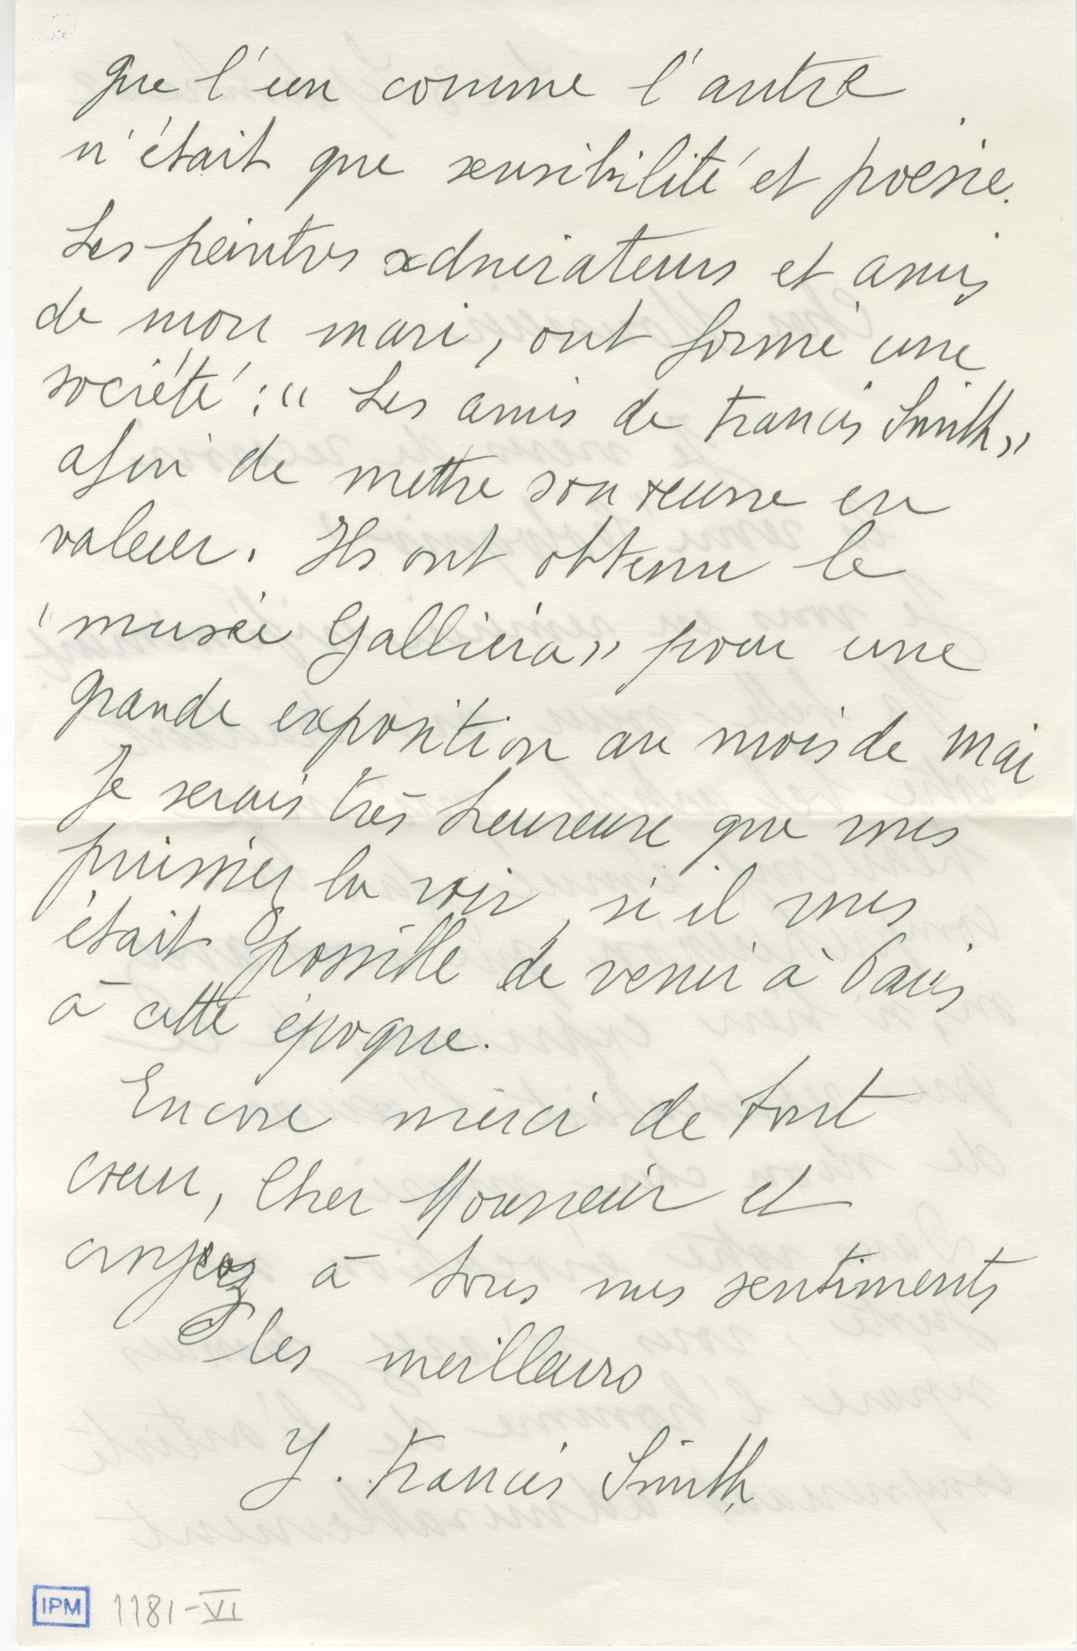 que l'un comme l'autre
n'était que sensibilité et poésie.
Les peintres admirateurs et amis
de mon mari, ont formé une
société : "Les amis de Francis Smith"
afin de mettre son œuvre en
valeur. Ils ont obtenu le
"musée Galliéra" pour une
grande exposition au mois de Mai
Je serais très heureuse que vous
puissiez la voir, si il vous
était possible de venir à Paris
à cette époque.
Encore merci de tout
cœur, Cher Monsieur et
croyez à tous mes sentiments
les meilleurs
Y. Francis Smith
IPM 1181-VI